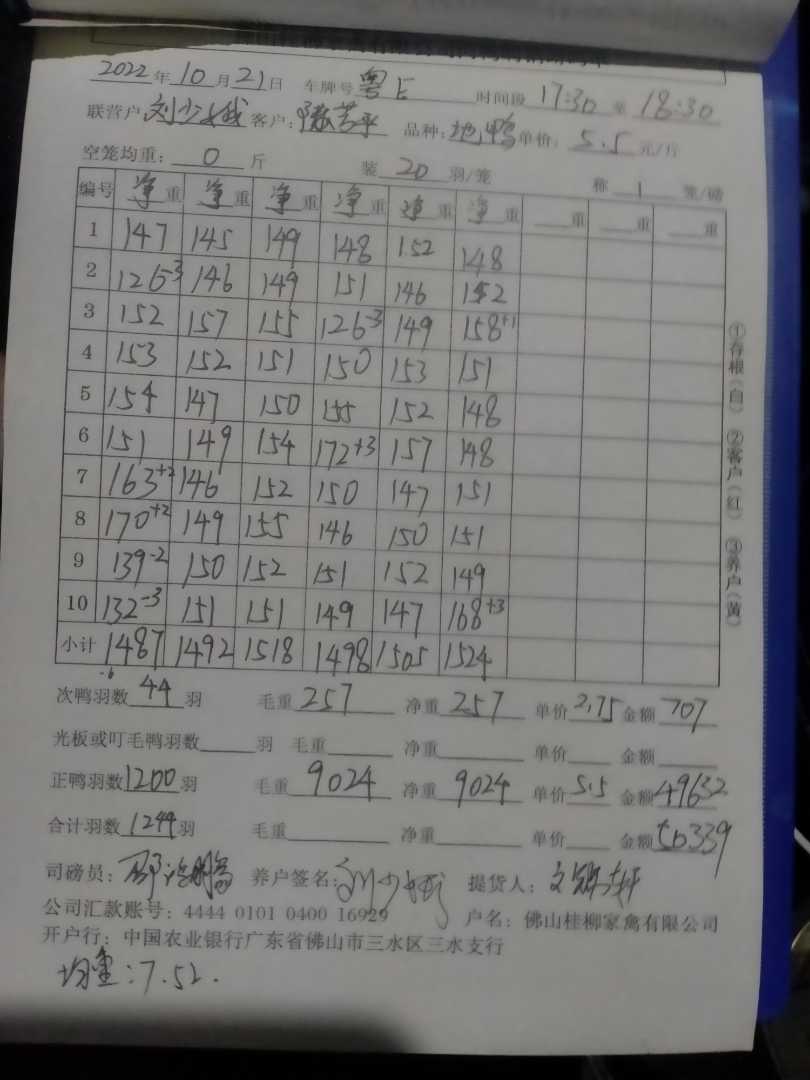 2022年10月21日 车牌号 粤E 时间段 17:30 至 18:30
联营户 刘少娥 客户: 陈芳平 品种: 地鸭 单价: 5.5 元/斤
空笼均重: 0 斤 装 20 羽/笼 称 1 笼/磅
编号 净重 净重 净重 净重 净重 净重 重 重 重
1 147 145 149 148 152 148
2 126-3 146 149 151 146 152
3 152 157 155 126-3 149 158+1
4 153 152 151 150 153 151
5 154 147 150 155 152 148
6 151 149 154 172+3 157 148
7 163+2 146 152 150 147 151
8 170+2 149 155 146 150 151
9 139-2 150 152 151 152 149
10 132-3 151 151 149 147 168+3
小计 1487 1492 1518 1498 1505 1524
-6
次鸭羽数 44 羽 毛重 257 净重 257 单价 2.75 金额 707
光板或叮毛鸭羽数 羽 毛重 净重 单价 金额
正鸭羽数 1200 羽 毛重 9024 净重 9024 单价 5.5 金额 49632
合计羽数 1244 羽 毛重 净重 单价 金额 50339
司磅员: 养户签名: 刘少娥 提货人:
公司汇款账号: 4444 0101 0400 16929 户名: 佛山桂柳家禽有限公司
开户行: 中国农业银行广东省佛山市三水区三水支行
均重: 7.52.
①存根(白) ②客户(红) ③养户(黄)